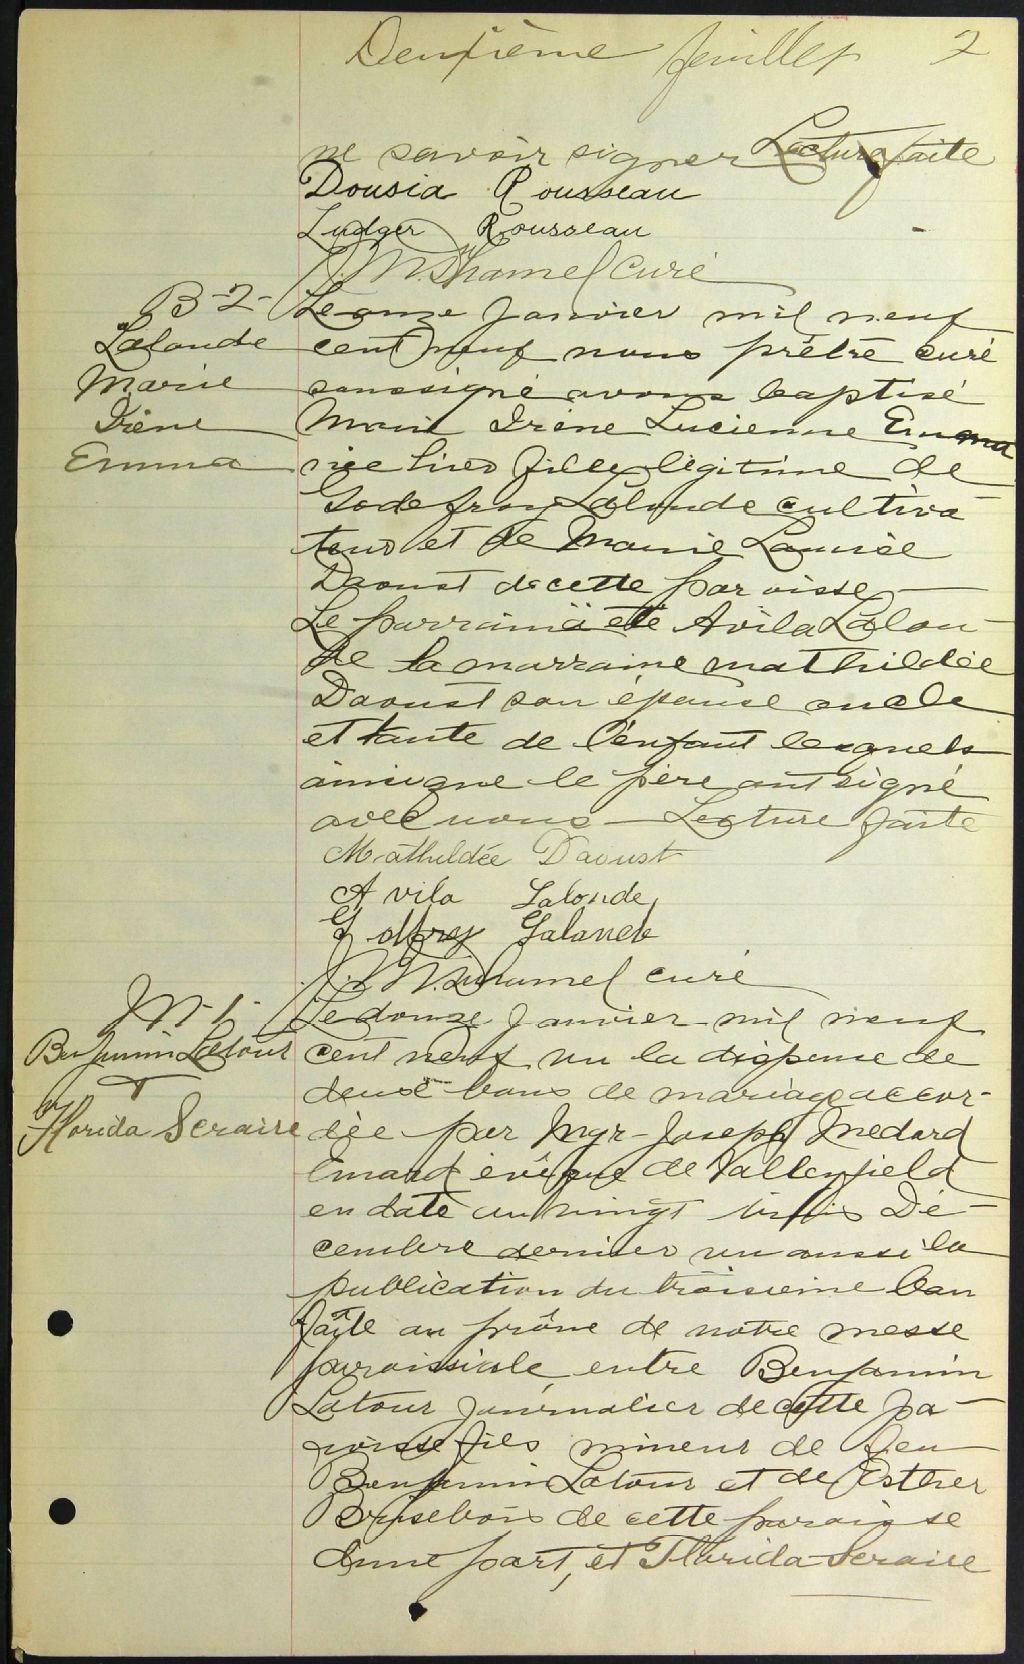 Deuxième feuillet 2
ne savoir signer Lecture faite
Dousia Rousseau
Ludger Rousseau
curé
B-2-
Lalonde
Marie
Irène
Emma
Le onze Janvier mil neuf
cent neuf nous prêtre curé
soussigné avons baptisé
Marie Irène Lucienne Emma
née hier fille légitime de
Godefroy Lalonde cultiva
teur et de Marie Louise
Daoust de cette paroisse
Le parrain a été Avila Lalon-
de la marraine mathildée
Daoust son épouse oncle
et tante de l'enfant lesquels
ainsique le père ont signé
avec nous — Lecture faite
Mathildée Daoust
Avila Lalonde
Godfrey Lalonde
curé
M-1-
Benjamin Latour
&
Florida Seraire
Le douze Janvier mil neuf
cent neuf vu la dispense de
deux bans de mariage accor-
dée par Mgr Joseph Medard
Emard évêque de Valleyfield
en date du vingt trois Dé-
cembre dernier vu aussi la
publication du troisième ban
faite au prône de notre messe
paroissiale entre Benjamin
Latour journalier de cette pa-
roisse fils mineur de feu
Benjamin Latour et de Esther
Brisebois de cette paroisse
d'une part, et Florida Seraire